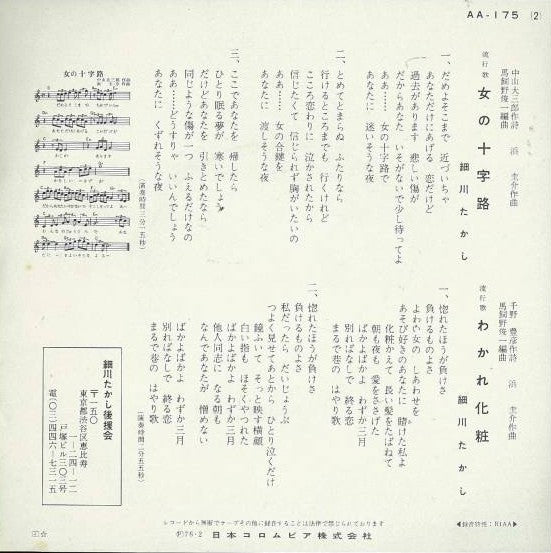 AA-175 (2)
中山大三郎作詩
浜 圭介作曲
馬飼野俊一編曲
流行歌 女の十字路
細川たかし
一、だめよそこまで 近づいちゃ
あなただけにあげる 恋だけど
過去があります 悲しい傷が
だからあなた いそがないで少し待ってよ
ああ…… 女の十字路で
あなたに 迷いそうな夜
二、とめてとまらぬ ふたりなら
行けるところまでも 行くけれど
こころ変わりに 泣かされたから
信じたくて 信じられず胸がいたいの
ああ…… 女の合鍵を
あなたに 渡しそうな夜
三、ここであなたを 帰したら
ひとり眠る夢が 寒いでしょ
だけどあなたを 引きとめたなら
同じような傷が一つ ふえるだけなの
ああ……どうすりゃ いいんでしょう
あなたに くずれそうな夜
(演奏時間三分二五秒)
女の十字路
千野 豊彦作詩
浜 圭介作曲
馬飼野俊一編曲
流行歌 わかれ化粧
細川たかし
一、惚れたほうが負けさ
負けるものよさ
よわい女の しあわせを
あそび好きのあなたに 賭けた私よ
化粧かえて 長い髪をたばねて
朝も夜も 愛をささげた
ばかよばかよ わずか三月
別ればなしで 終る恋
まるで巷の はやり歌
二、惚れたほうが負けさ
負けるものよさ
私だったら だいじょうぶ
つよく見せてあとから ひとり泣くだけ
鏡ふいて そっと映す横顔
白い指も ほそくやつれた
ばかよばかよ わずか三月
他人同志に なる朝も
なんであなたが 憎めない
ばかよばかよ わずか三月
別ればなしで 終る恋
まるで巷の はやり歌
(演奏時間二分五五秒)
細川たかし後援会
〒一五〇
東京都渋谷区恵比寿
一ー二四ー一二
戸塚ビル三〇三号
電(〇三)四四六ー七三一五
レコードから無断でテープその他に録音することは法律で禁じられております
◀録音特性：RIAA▶
Ⓟ76・2 日本コロムビア株式会社